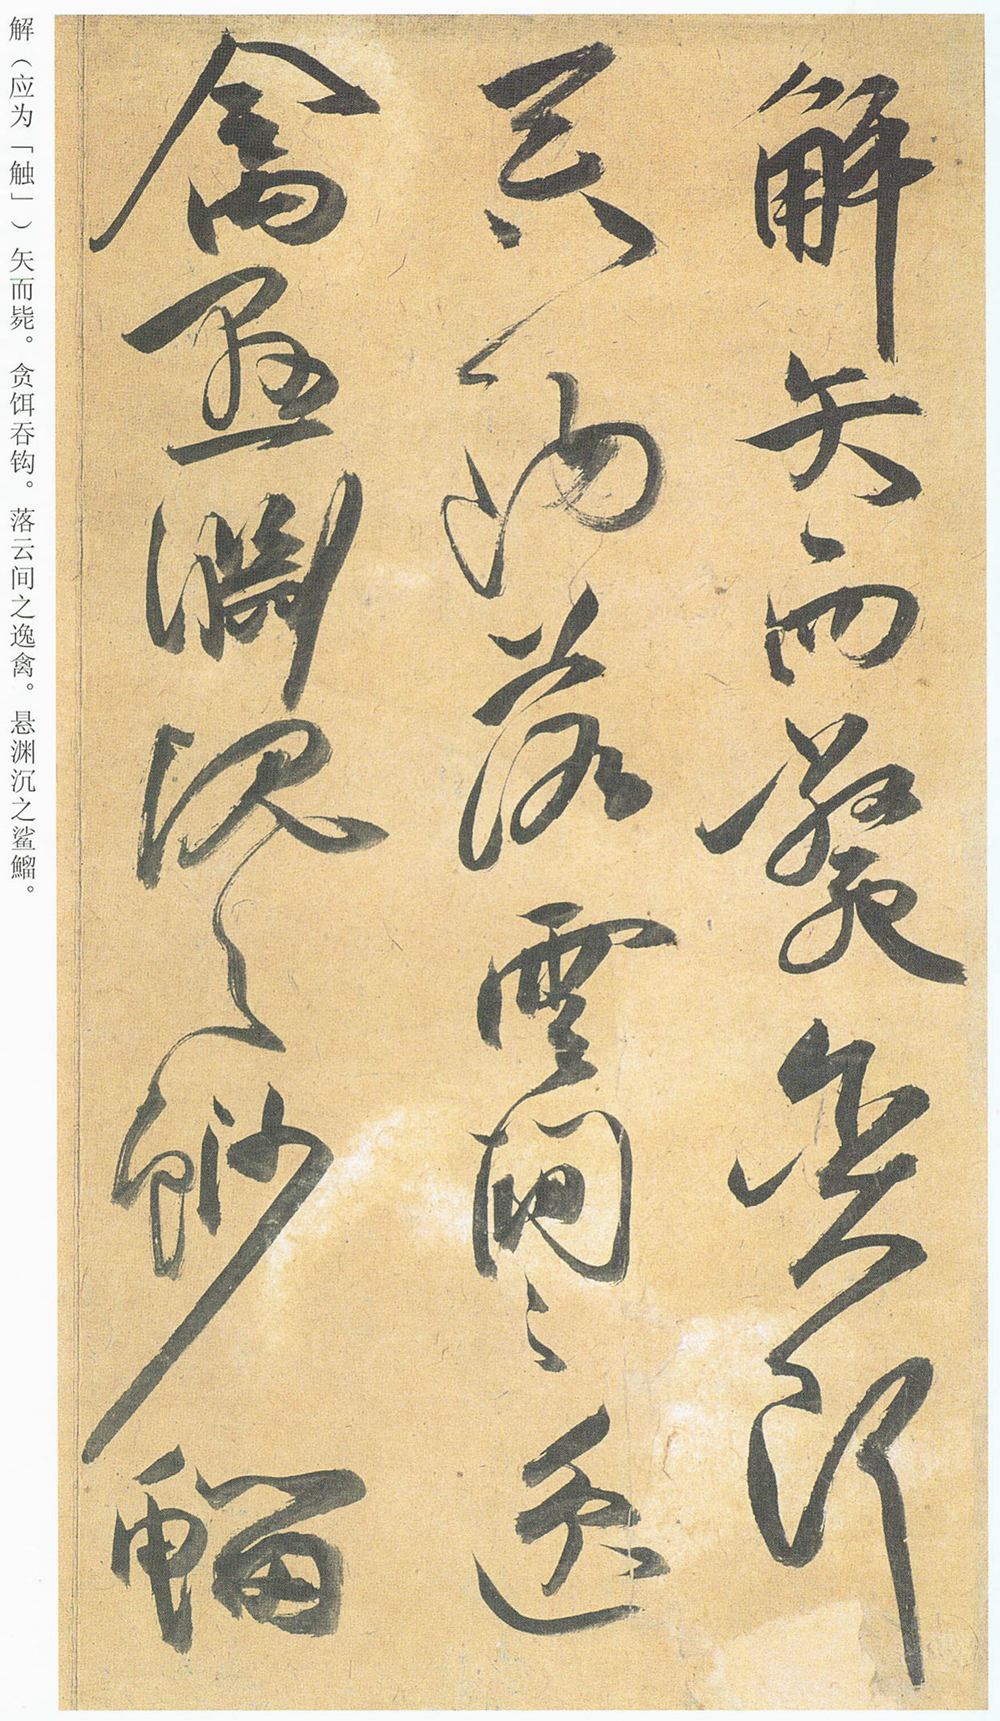 解矢而斃貪餌
吞鈎落雲間之逸
禽懸淵沈之鯋鰡
解（应为「触」）矢而毙。贪饵吞钩。落云间之逸禽。悬渊沉之鲨鰡。